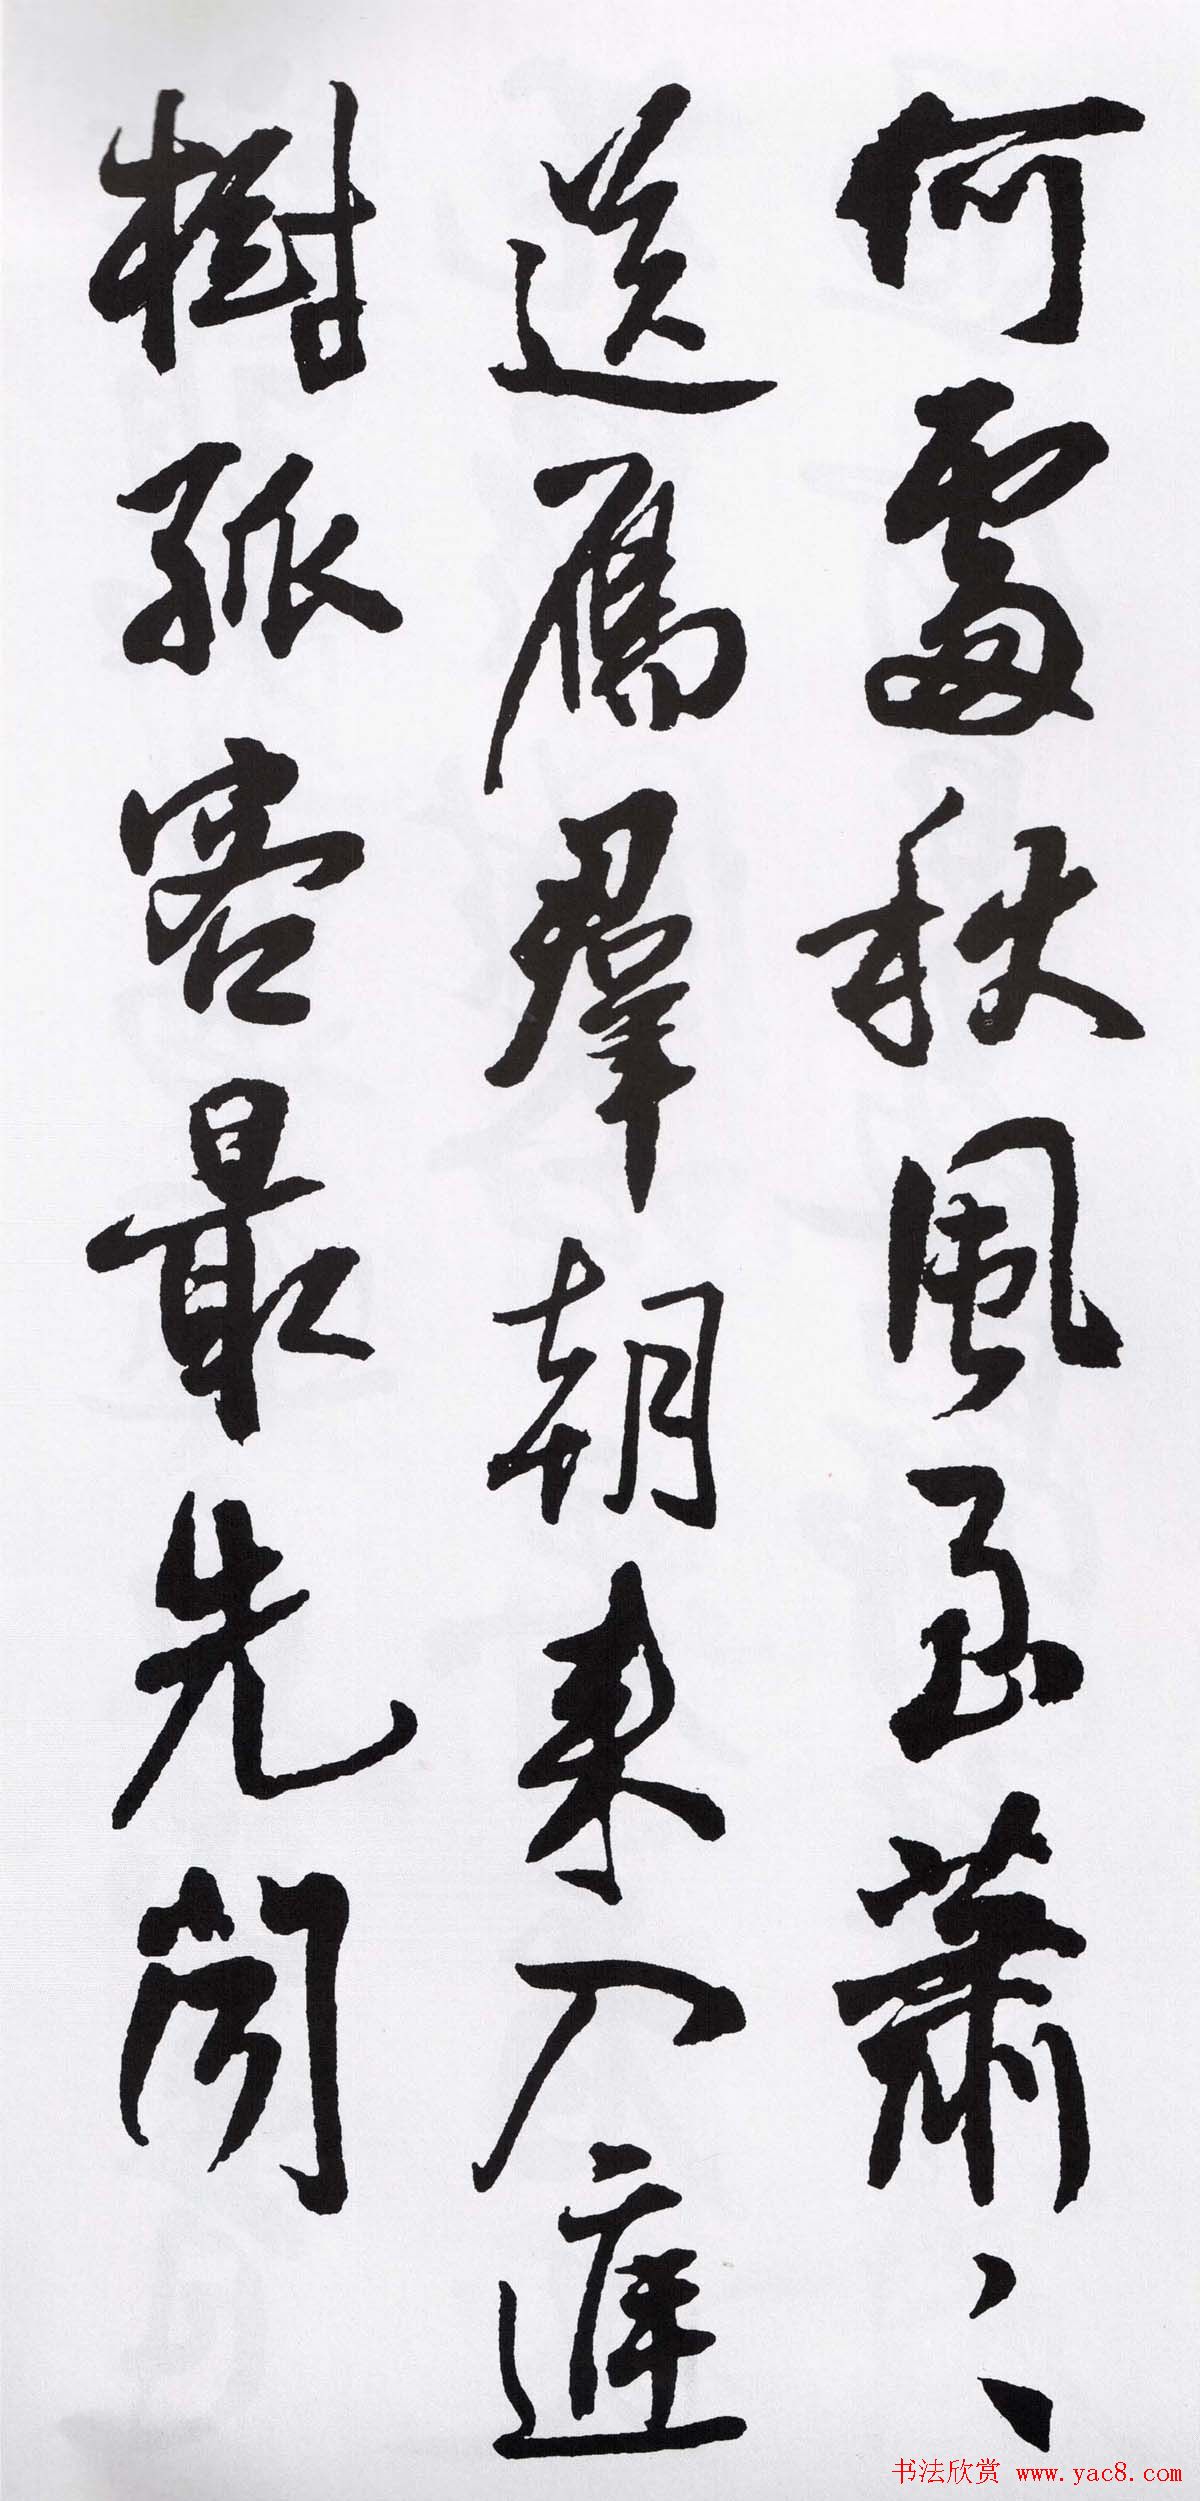 何處秋風至蕭〻
送雁羣朝來入庭
樹孤客最先聞
书法欣赏 www.yac8.com